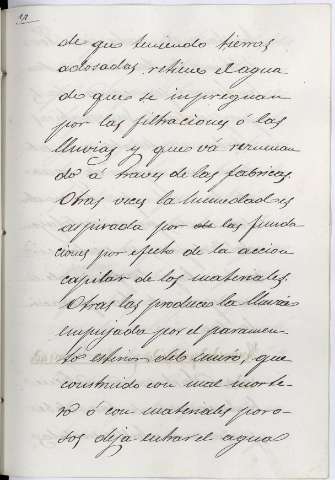 de que teniendo tierras
adosadas, retiene el agua
de que se impregnan
por las filtraciones ó las
lluvias y que vá rezuman
do á traves de las fabricas.
Otras veces la humedad es
aspirada por las funda
ciones por efecto de la accion
capilar de los materiales.
Otras las produce la lluvia
empujada por el paramen-
to esterior del muro, que
construido con mal morte-
ro ó con materiales poro-
sos deja entrar el agua